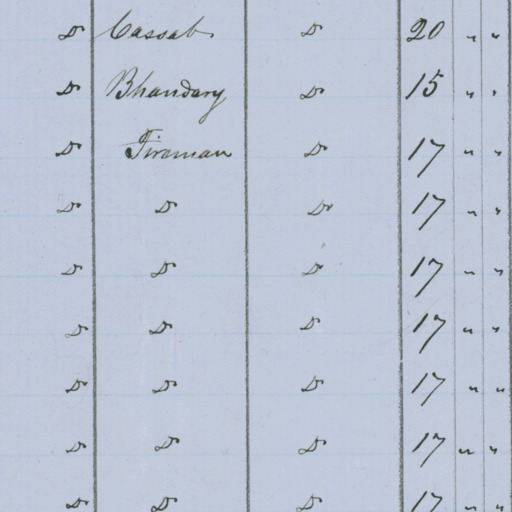 Do Cassab Do 20 " "
Do Bhandary Do 15 " "
Do Fireman Do 17 " "
Do Do Do 17 " "
Do Do Do 17 " "
Do Do Do 17 " "
Do Do Do 17 " "
Do Do Do 17 " "
Do Do Do 17 " "